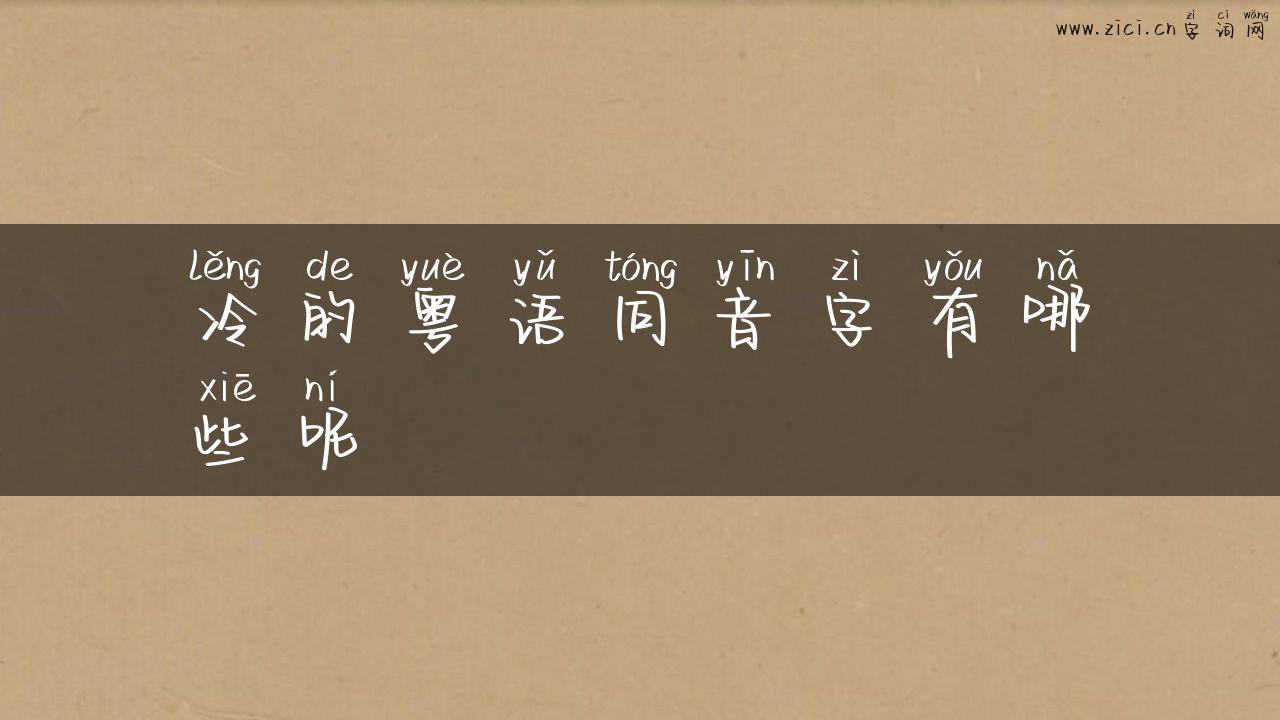 zì cí wǎng
www.zici.cn 字词网
lěng de yuè yǔ tóng yīn zì yǒu nǎ
冷的粤语同音字有哪
xiē ní
些呢